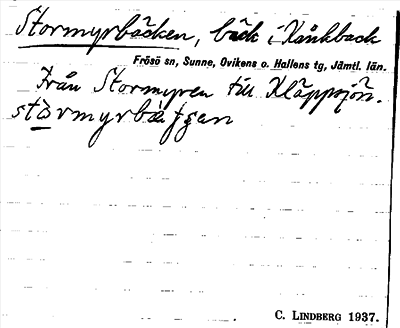 Stormyrbäcken, bäck i Kånkback
Frösö sn, Sunne, Ovikens o. Hallens tg, Jämtl. län.
Från Stormyren till Kläppsjön.
C. LINDBERG 1937.